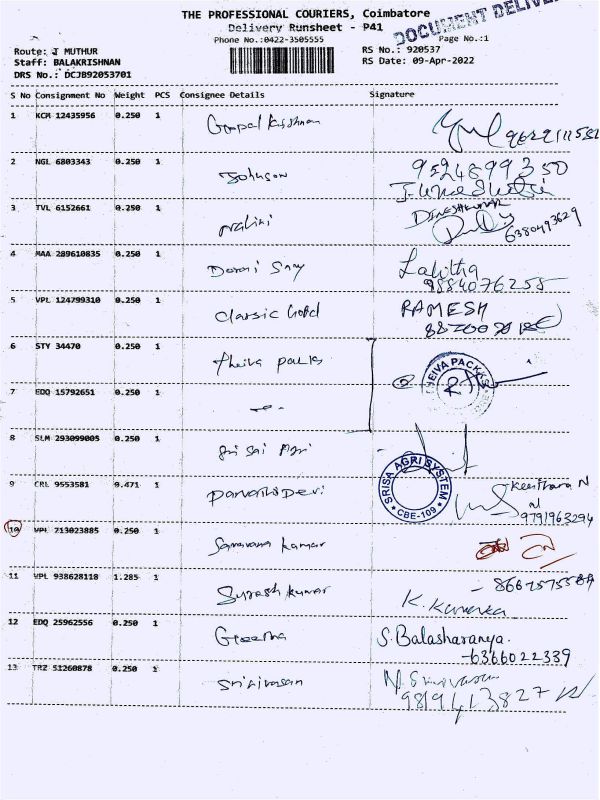 THE PROFESSIONAL COURIERS, Coimbatore
Delivery Runsheet - P41
DOCUMENT DELIVER
Phone No.:0422-3505555
Page No.:1
Route: J MUTHUR
RS No.: 920537
Staff: BALAKRISHNAN
RS Date: 09-Apr-2022
DRS No.: DCJB92053701
S No Consignment No Weight PCS Consignee Details Signature
1 KCM 12435956 0.250 1 Gopal Krishnan
2 NGL 6803343 0.250 1 Johnson 9524899350
3 TVL 6152661 0.250 1 Nalini DINESHKUMAR
6380493629
4 MAA 289610835 0.250 1 Lalitha
9884076255
5 VPL 124799310 0.250 1 classic hotel RAMESH
6 STY 34470 0.250 1 theiva packs
HEIVA PACKKS
7 EDQ 15792651 0.250 1
8 SLM 293099005 0.250 1 Sri Sai Agri
SRISAI AGRI SYSTEM
CBE-109
9 CRL 9553581 0.471 1 Parvathi Devi Keerthana N
9791963294
10 VPL 713023885 0.250 1 Saravana Kumar
11 VPL 938628118 1.285 1 Suresh kumar
12 EDQ 25962556 0.250 1 Geetha S. Balasharanya.
-6366022339
13 TRZ 51260878 0.250 1 Srinivasan N. Srinivasan
9894413827